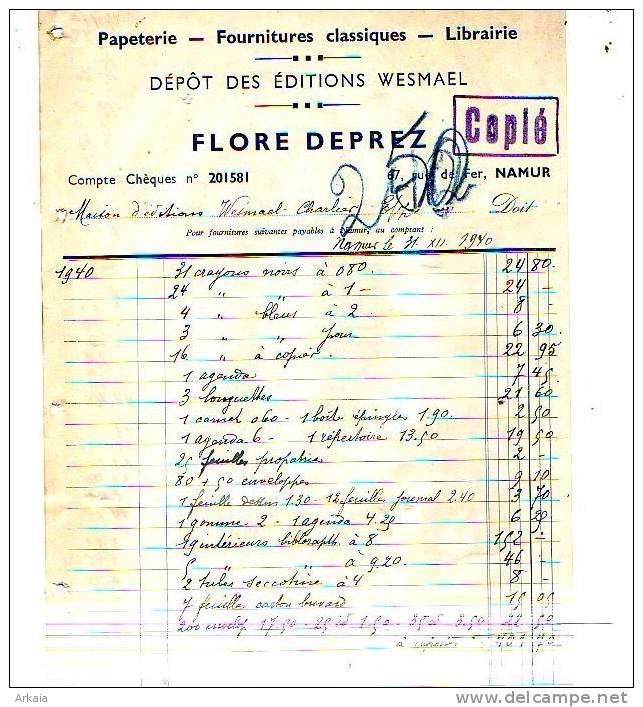 Papeterie — Fournitures classiques — Librairie
DÉPÔT DES ÉDITIONS WESMAEL
FLORE DEPREZ
Copié
Compte Chèques n° 201581 67, rue de Fer, NAMUR
Maison d'éditions Wesmael-Charlier Doit
Pour fournitures suivantes payables à Namur, au comptant :
Namur le 31 XII. 1940
1940 31 crayons noirs à 0 80. 24 80.
24 " " à 1 – 24 –
4 " bleus à 2. 8 –
3 " " pour 6 30.
16 " à copier. 22 95
1 agenda 7 45.
3 banquettes 21 60
1 carnet 0 60 – 1 boîte épingles 1.90. 2 50
1 agenda 6 – 1 répertoire 13.50 19 50
25 feuilles 2 –
80 + 50 enveloppes 9 10
1 feuille dessin 1.30 – 12 feuilles journal 2.40 3 70
1 gomme 2 – 1 agenda 4.20 6 20
19 intérieurs bibloraph. à 8 152 –
5 " " à 9.20 46 –
2 tubes seccotine à 4 8 –
7 feuilles carton buvard 15 05
200 envelop 17.50 – 25 id 1.50 – 35 id 3.50 22 50
à reporter
Arkaia
www.delcampe.net